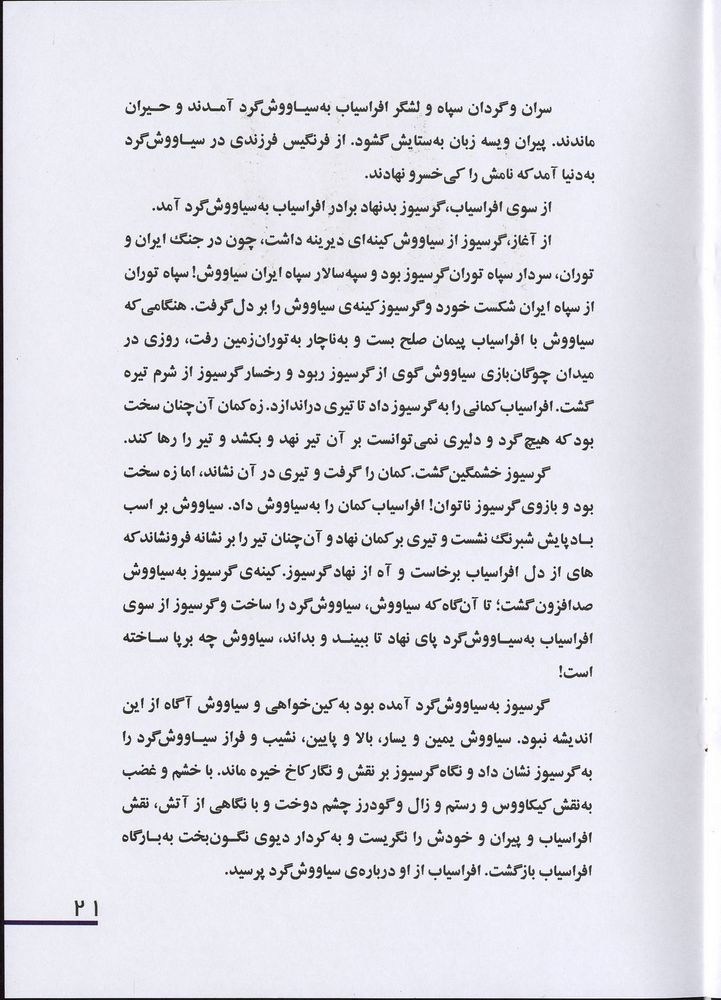 سران و گردان سپاه و لشگر افراسیاب به‌سیـاووش‌گرد آمـدند و حیـران
ماندند. پیران ویسه زبان به‌ستایش گشود. از فرنگیس فرزندی در سیـاووش‌گرد
به‌دنیا آمد که نامش را کی‌خسرو نهادند.
از سوی افراسیاب، گرسیوز بدنهاد برادر افراسیاب به‌سیاووش‌گرد آمد.
از آغاز، گرسیوز از سیاووش کینه‌ای دیرینه داشت، چون در جنگ ایران و
توران، سردار سپاه توران گرسیوز بود و سپه‌سالار سپاه ایران سیاووش! سپاه توران
از سپاه ایران شکست خورد و گرسیوز کینه‌ی سیاووش را بر دل گرفت. هنگامی که
سیاووش با افراسیاب پیمان صلح بست و به‌ناچار به‌توران‌زمین رفت، روزی در
میدان چوگان‌بازی سیاووش گوی از گرسیوز ربود و رخسار گرسیوز از شرم تیره
گشت. افراسیاب کمانی را به گرسیوز داد تا تیری دراندازد. زه کمان آن‌چنان سخت
بود که هیچ گرد و دلیری نمی‌توانست بر آن تیر نهد و بکشد و تیر را رها کند.
گرسیوز خشمگین گشت. کمان را گرفت و تیری در آن نشاند، اما زه سخت
بود و بازوی گرسیوز ناتوان! افراسیاب کمان را به‌سیاووش داد. سیاووش بر اسب
بـادپایش شبرنگ نشست و تیری بر کمان نهاد و آن‌چنان تیر را بر نشانه فرونشاند که
های از دل افراسیاب برخاست و آه از نهاد گرسیوز. کینه‌ی گرسیوز به‌سیاووش
صدافزون گشت؛ تا آن‌گاه که سیاووش، سیاووش‌گرد را ساخت و گرسیوز از سوی
افراسیاب به‌سیـاووش‌گرد پای نهاد تا ببینـد و بداند، سیاووش چه برپا سـاخته
است!
گرسیوز به‌سیاووش‌گرد آمده بود به‌کین‌خواهی و سیاووش آگاه از این
اندیشه نبود. سیاووش یمین و یسار، بالا و پایین، نشیب و فراز سیـاووش‌گرد را
به گرسیوز نشان داد و نگاه گرسیوز بر نقش و نگار کاخ خیره ماند. با خشم و غضب
به‌نقش کیکاووس و رستم و زال و گودرز چشم دوخت و با نگاهی از آتش، نقش
افراسیاب و پیران و خودش را نگریست و به‌کردار دیوی نگـون‌بخت به‌بـارگاه
افراسیاب بازگشت. افراسیاب از او درباره‌ی سیاووش‌گرد پرسید.
۲۱